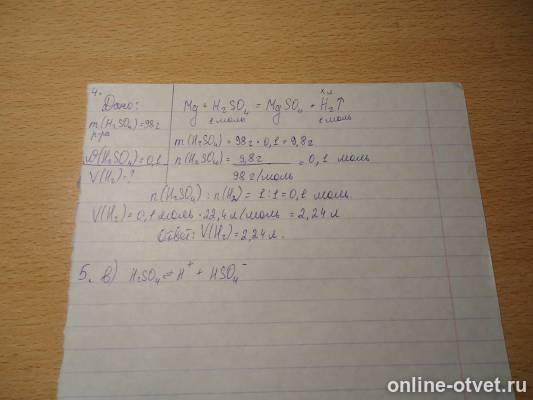 4.
Дано:
m(H₂SO₄)=98г
р-ра
ω(H₂SO₄)=0,1
V(H₂)-?
x л
Mg + H₂SO₄ = MgSO₄ + H₂↑
1 моль 1 моль
m(H₂SO₄) = 98г · 0,1 = 9,8г
n(H₂SO₄) = 9,8г = 0,1 моль
98 г/моль
n(H₂SO₄) : n(H₂) = 1:1 = 0,1 моль.
V(H₂) = 0,1 моль · 22,4 л/моль = 2,24 л
Ответ: V(H₂) = 2,24 л.
5. в) H₂SO₄ ⇄ H⁺ + HSO₄⁻
online-otvet.ru